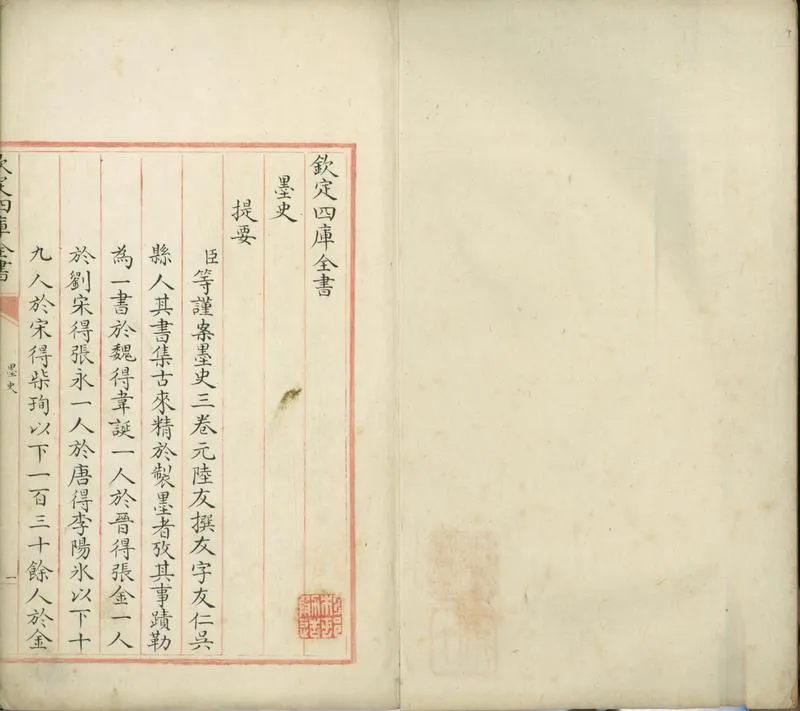 欽定四庫全書
墨史
提要
臣等謹案墨史三卷元陸友撰友字友仁吳
縣人其書集古來精於製墨者攷其事蹟勒
為一書於魏得韋誕一人於晉得張金一人
於劉宋得張永一人於唐得李陽氷以下十
九人於宋得柴珣以下一百三十餘人於金
欽定四庫全書
墨史
一